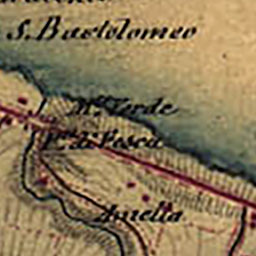 S. Bartolomeo
M.te Verde
P.ta di Pesca
Anella